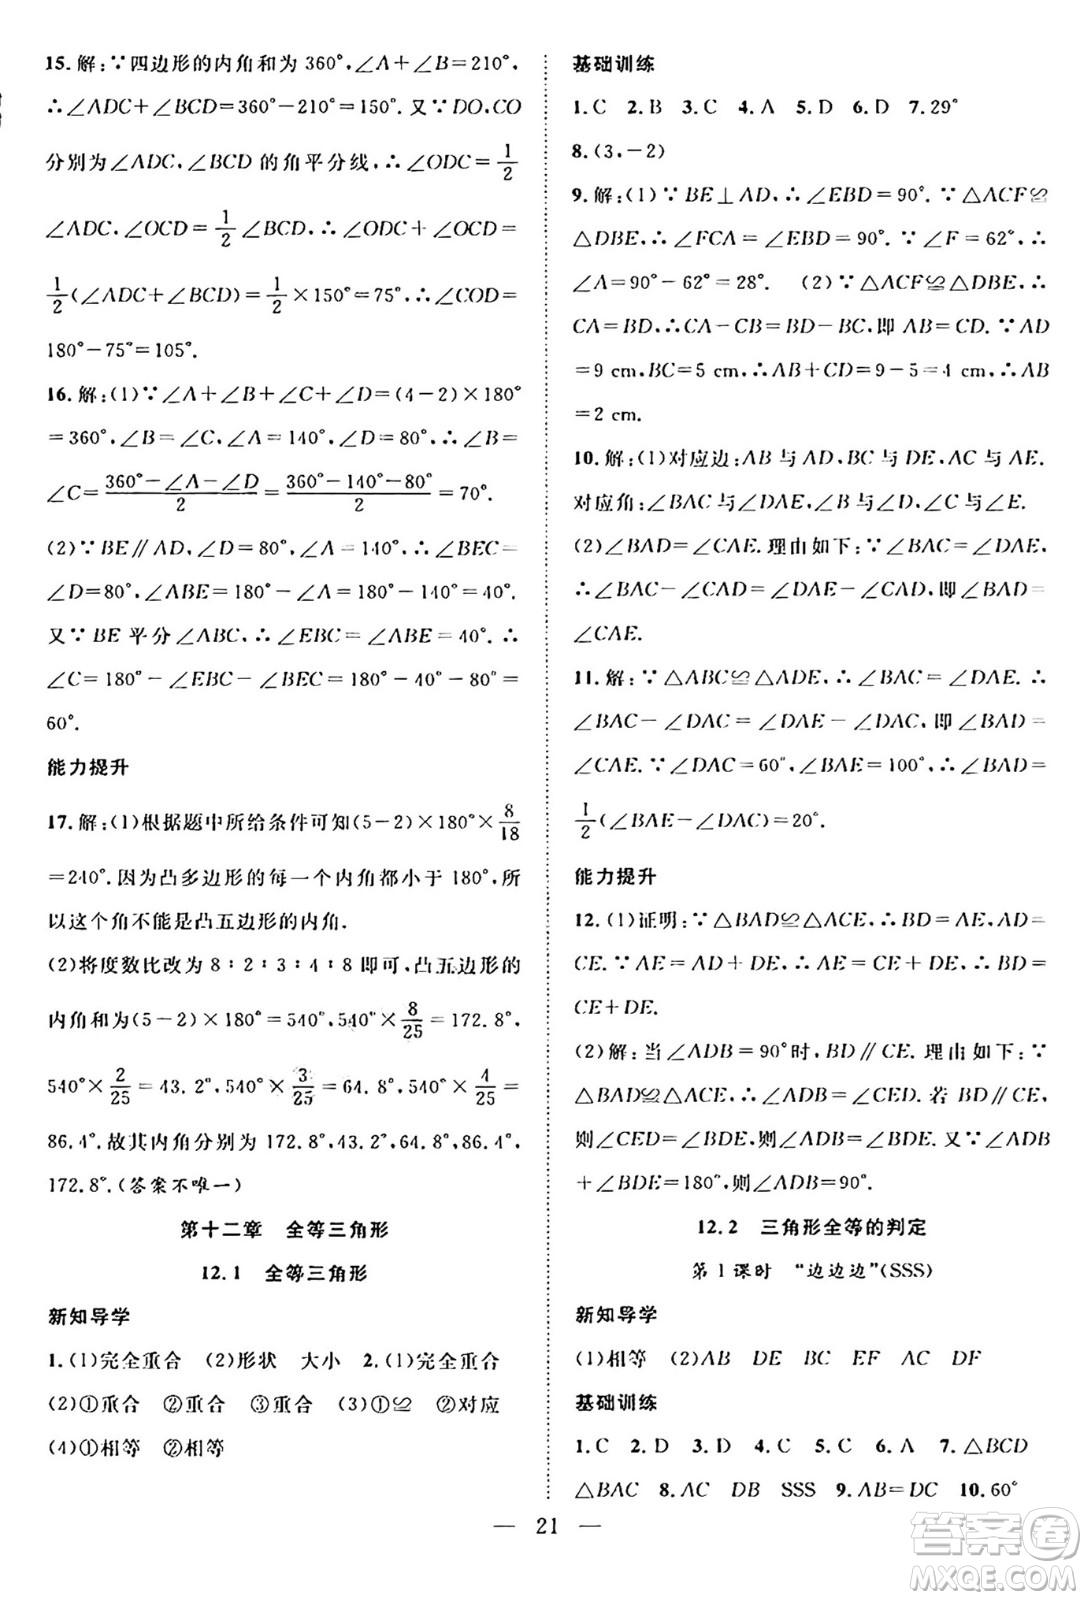 15. 解:∵四边形的内角和为 360°,∠A+∠B=210°,
∴∠ADC+∠BCD=360°-210°=150°. 又∵DO,CO
分别为∠ADC,∠BCD 的角平分线,∴∠ODC=1/2
∠ADC,∠OCD=1/2∠BCD,∴∠ODC+∠OCD=
1/2(∠ADC+∠BCD)=1/2×150°=75°,∴∠COD=
180°-75°=105°.
16. 解:(1)∵∠A+∠B+∠C+∠D=(4-2)×180°
=360°,∠B=∠C,∠A=140°,∠D=80°,∴∠B=
∠C=(360°-∠A-∠D)/2=(360°-140°-80°)/2=70°.
(2)∵BE∥AD,∠D=80°,∠A=140°,∴∠BEC=
∠D=80°,∠ABE=180°-∠A=180°-140°=40°.
又∵BE 平分∠ABC,∴∠EBC=∠ABE=40°. ∴
∠C=180°-∠EBC-∠BEC=180°-40°-80°=
60°.
能力提升
17. 解:(1)根据题中所给条件可知(5-2)×180°×8/18
=240°. 因为凸多边形的每一个内角都小于 180°,所
以这个角不能是凸五边形的内角.
(2)将度数比改为 8∶2∶3∶4∶8 即可,凸五边形的
内角和为(5-2)×180°=540°,540°×8/25=172.8°,
540°×2/25=43.2°,540°×3/25=64.8°,540°×4/25=
86.4°. 故其内角分别为 172.8°,43.2°,64.8°,86.4°,
172.8°.(答案不唯一)
第十二章 全等三角形
12.1 全等三角形
新知导学
1.(1)完全重合 (2)形状 大小 2.(1)完全重合
(2)①重合 ②重合 ③重合 (3)①≌ ②对应
(4)①相等 ②相等
基础训练
1.C 2.B 3.C 4.A 5.D 6.D 7.29°
8.(3,-2)
9. 解:(1)∵BE⊥AD,∴∠EBD=90°. ∵△ACF≌
△DBE,∴∠FCA=∠EBD=90°. ∵∠F=62°,∴
∠A=90°-62°=28°. (2)∵△ACF≌△DBE,∴
CA=BD,∴CA-CB=BD-BC,即 AB=CD. ∵AD
=9 cm,BC=5 cm,∴AB+CD=9-5=4 cm,∴AB
=2 cm.
10. 解:(1)对应边:AB 与 AD,BC 与 DE,AC 与 AE.
对应角:∠BAC 与∠DAE,∠B 与∠D,∠C 与∠E.
(2)∠BAD=∠CAE. 理由如下:∵∠BAC=∠DAE,
∴∠BAC-∠CAD=∠DAE-∠CAD,即∠BAD=
∠CAE.
11. 解:∵△ABC≌△ADE,∴∠BAC=∠DAE. ∴
∠BAC-∠DAC=∠DAE-∠DAC,即∠BAD=
∠CAE. ∵∠DAC=60°,∠BAE=100°,∴∠BAD=
1/2(∠BAE-∠DAC)=20°.
能力提升
12. (1)证明:∵△BAD≌△ACE,∴BD=AE,AD=
CE. ∵AE=AD+DE,∴BD=
CE+DE.
(2)解:当∠ADB=90°时,BD∥CE. 理由如下:∵
△BAD≌△ACE,∴∠ADB=∠CED. 若 BD∥CE,
则∠CED=∠BDE,则∠ADB=∠BDE. 又∵∠ADB
+∠BDE=180°,则∠ADB=90°.
12.2 三角形全等的判定
第 1 课时 “边边边”(SSS)
新知导学
(1)相等 (2)AB DE BC EF AC DF
基础训练
1.C 2.D 3.D 4.B 5.C 6.A 7.△BCD
△BAC 8.AC DB SSS 9.AB=DC 10.60°
— 21 —
答案卷
MXQE.COM